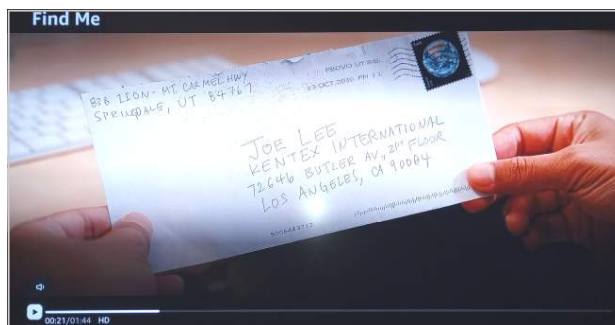 Find Me
838 ZION - MT. CARMEL HWY
SPRINGDALE, UT 84767
PROVO UT
23 OCT 2016 PM 2 L
JOE LEE
KENTEX INTERNATIONAL
72646 BUTLER AV., 21ST FLOOR
LOS ANGELES, CA 90064
00:21/01:44 HD